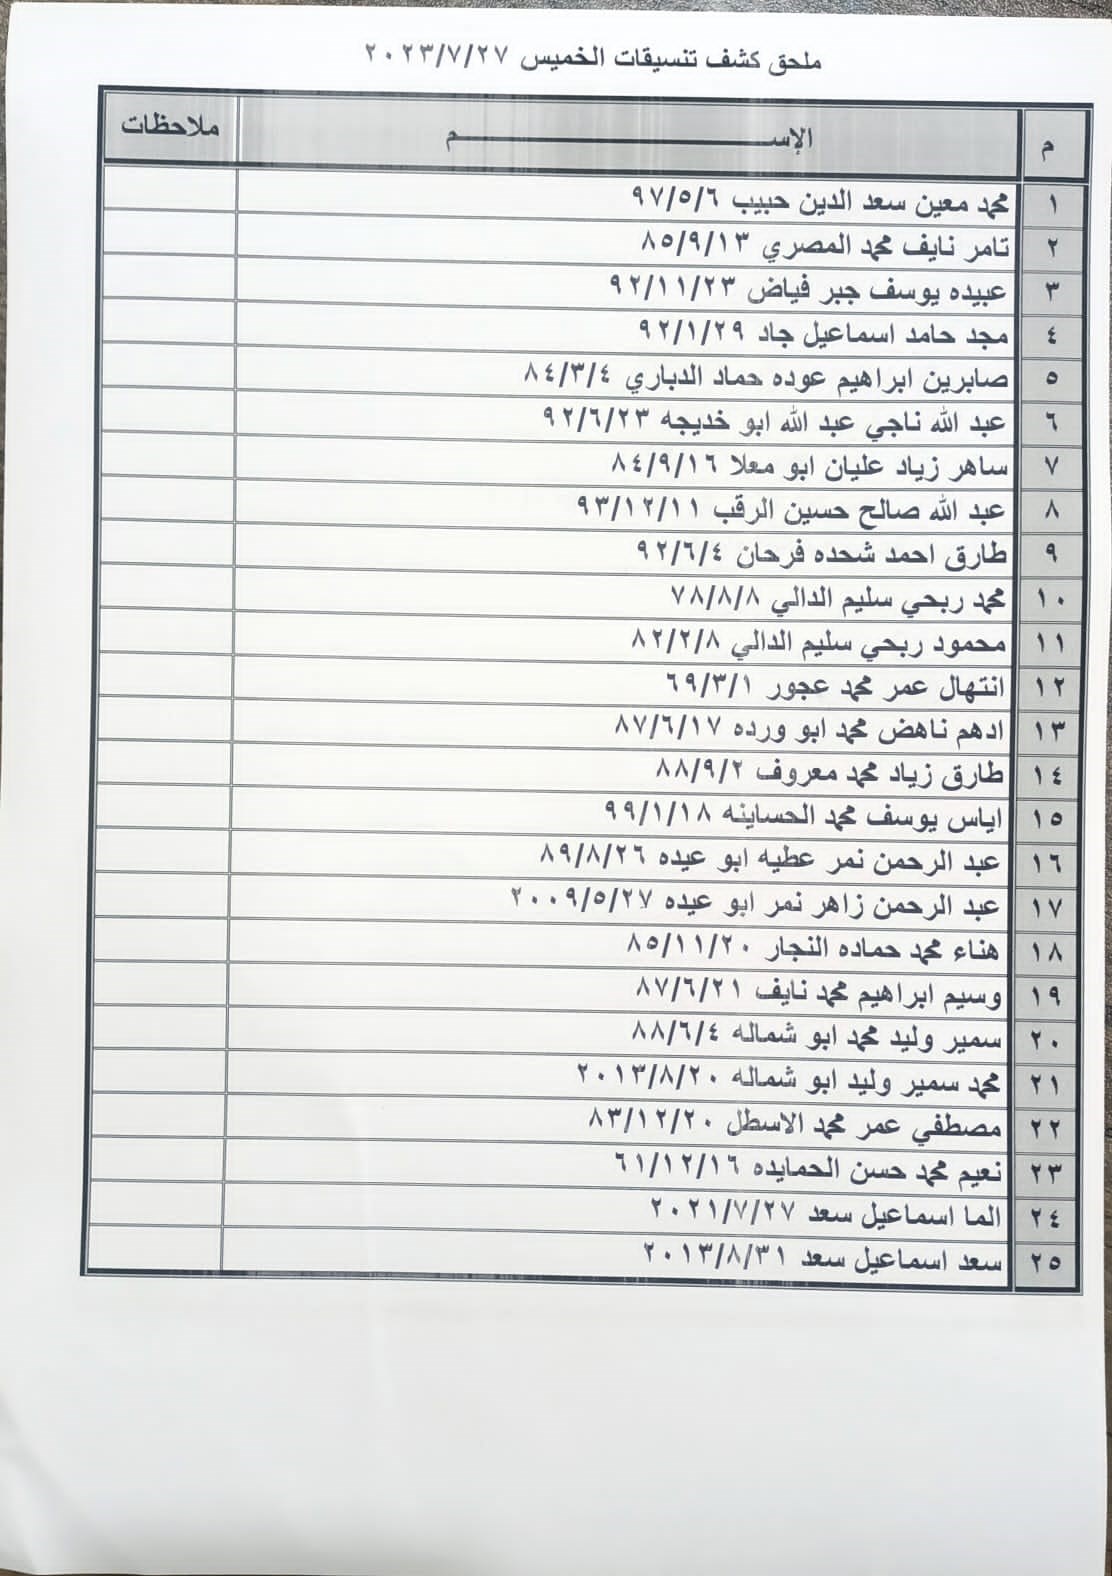 ملحق كشف تنسيقات الخميس ٢٠٢٣/٧/٢٧
م الإســـــــم ملاحظات
١ محمد معين سعد الدين حبيب ٩٧/٥/٦
٢ تامر نايف محمد المصري ٨٥/٩/١٣
٣ عبيده يوسف جبر فياض ٩٢/١١/٢٣
٤ مجد حامد اسماعيل جاد ٩٢/١/٢٩
٥ صابرين ابراهيم عوده حماد الدباري ٨٤/٣/٤
٦ عبد الله ناجي عبد الله ابو خديجه ٩٢/٦/٢٣
٧ ساهر زياد عليان ابو معلا ٨٤/٩/١٦
٨ عبد الله صالح حسين الرقب ٩٣/١٢/١١
٩ طارق احمد شحده فرحان ٩٢/٦/٤
١٠ محمد ربحي سليم الدالي ٧٨/٨/٨
١١ محمود ربحي سليم الدالي ٨٢/٢/٨
١٢ انتهال عمر محمد عجور ٦٩/٣/١
١٣ ادهم ناهض محمد ابو ورده ٨٧/٦/١٧
١٤ طارق زياد محمد معروف ٨٨/٩/٢
١٥ اياس يوسف محمد الحساينه ٩٩/١/١٨
١٦ عبد الرحمن نمر عطيه ابو عيده ٨٩/٨/٢٦
١٧ عبد الرحمن زاهر نمر ابو عيده ٢٠٠٩/٥/٢٧
١٨ هناء محمد حماده النجار ٨٥/١١/٢٠
١٩ وسيم ابراهيم محمد نايف ٨٧/٦/٢١
٢٠ سمير وليد محمد ابو شماله ٨٨/٦/٤
٢١ محمد سمير وليد ابو شماله ٢٠١٣/٨/٢٠
٢٢ مصطفي عمر محمد الاسطل ٨٣/١٢/٢٠
٢٣ نعيم محمد حسن الحمايده ٦١/١٢/١٦
٢٤ الما اسماعيل سعد ٢٠٢١/٧/٢٧
٢٥ سعد اسماعيل سعد ٢٠١٣/٨/٣١